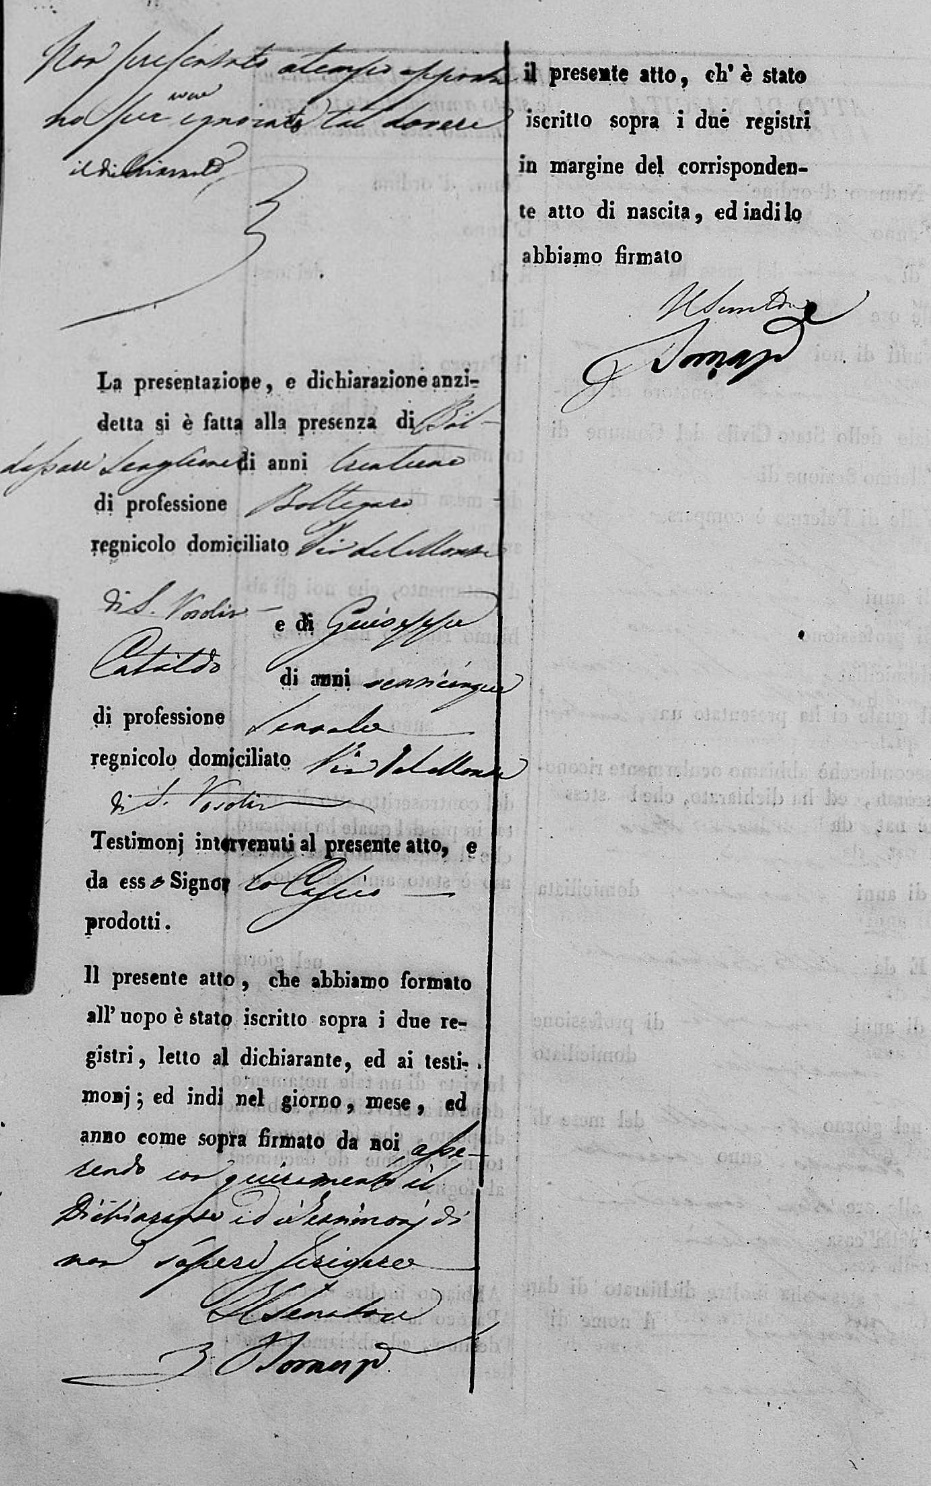 Non presentato a tempo opportu-
no per aver ignorato tal dovere
il dichiarante
La presentazione, e dichiarazione anzi-
detta si è fatta alla presenza di Bal-
dassare Scaglione di anni trentuno
di professione Bottegaro
regnicolo domiciliato Via del Monte
di S.
e di Giuseppe
Cataldo di anni venticinque
di professione
regnicolo domiciliato Via del Monte
di S.
Testimonj intervenuti al presente atto, e
da esso Signor Lo Cascio
prodotti.
Il presente atto, che abbiamo formato
all'uopo è stato iscritto sopra i due re-
gistri, letto al dichiarante, ed ai testi-
monj; ed indi nel giorno, mese, ed
anno come sopra firmato da noi asse-
rendo con giuramento il
Dichiarante ed i Testimonj di
non sapere scrivere
Il Senatore
il presente atto, ch'è stato
iscritto sopra i due registri
in margine del corrisponden-
te atto di nascita, ed indi lo
abbiamo firmato
Il Senatore